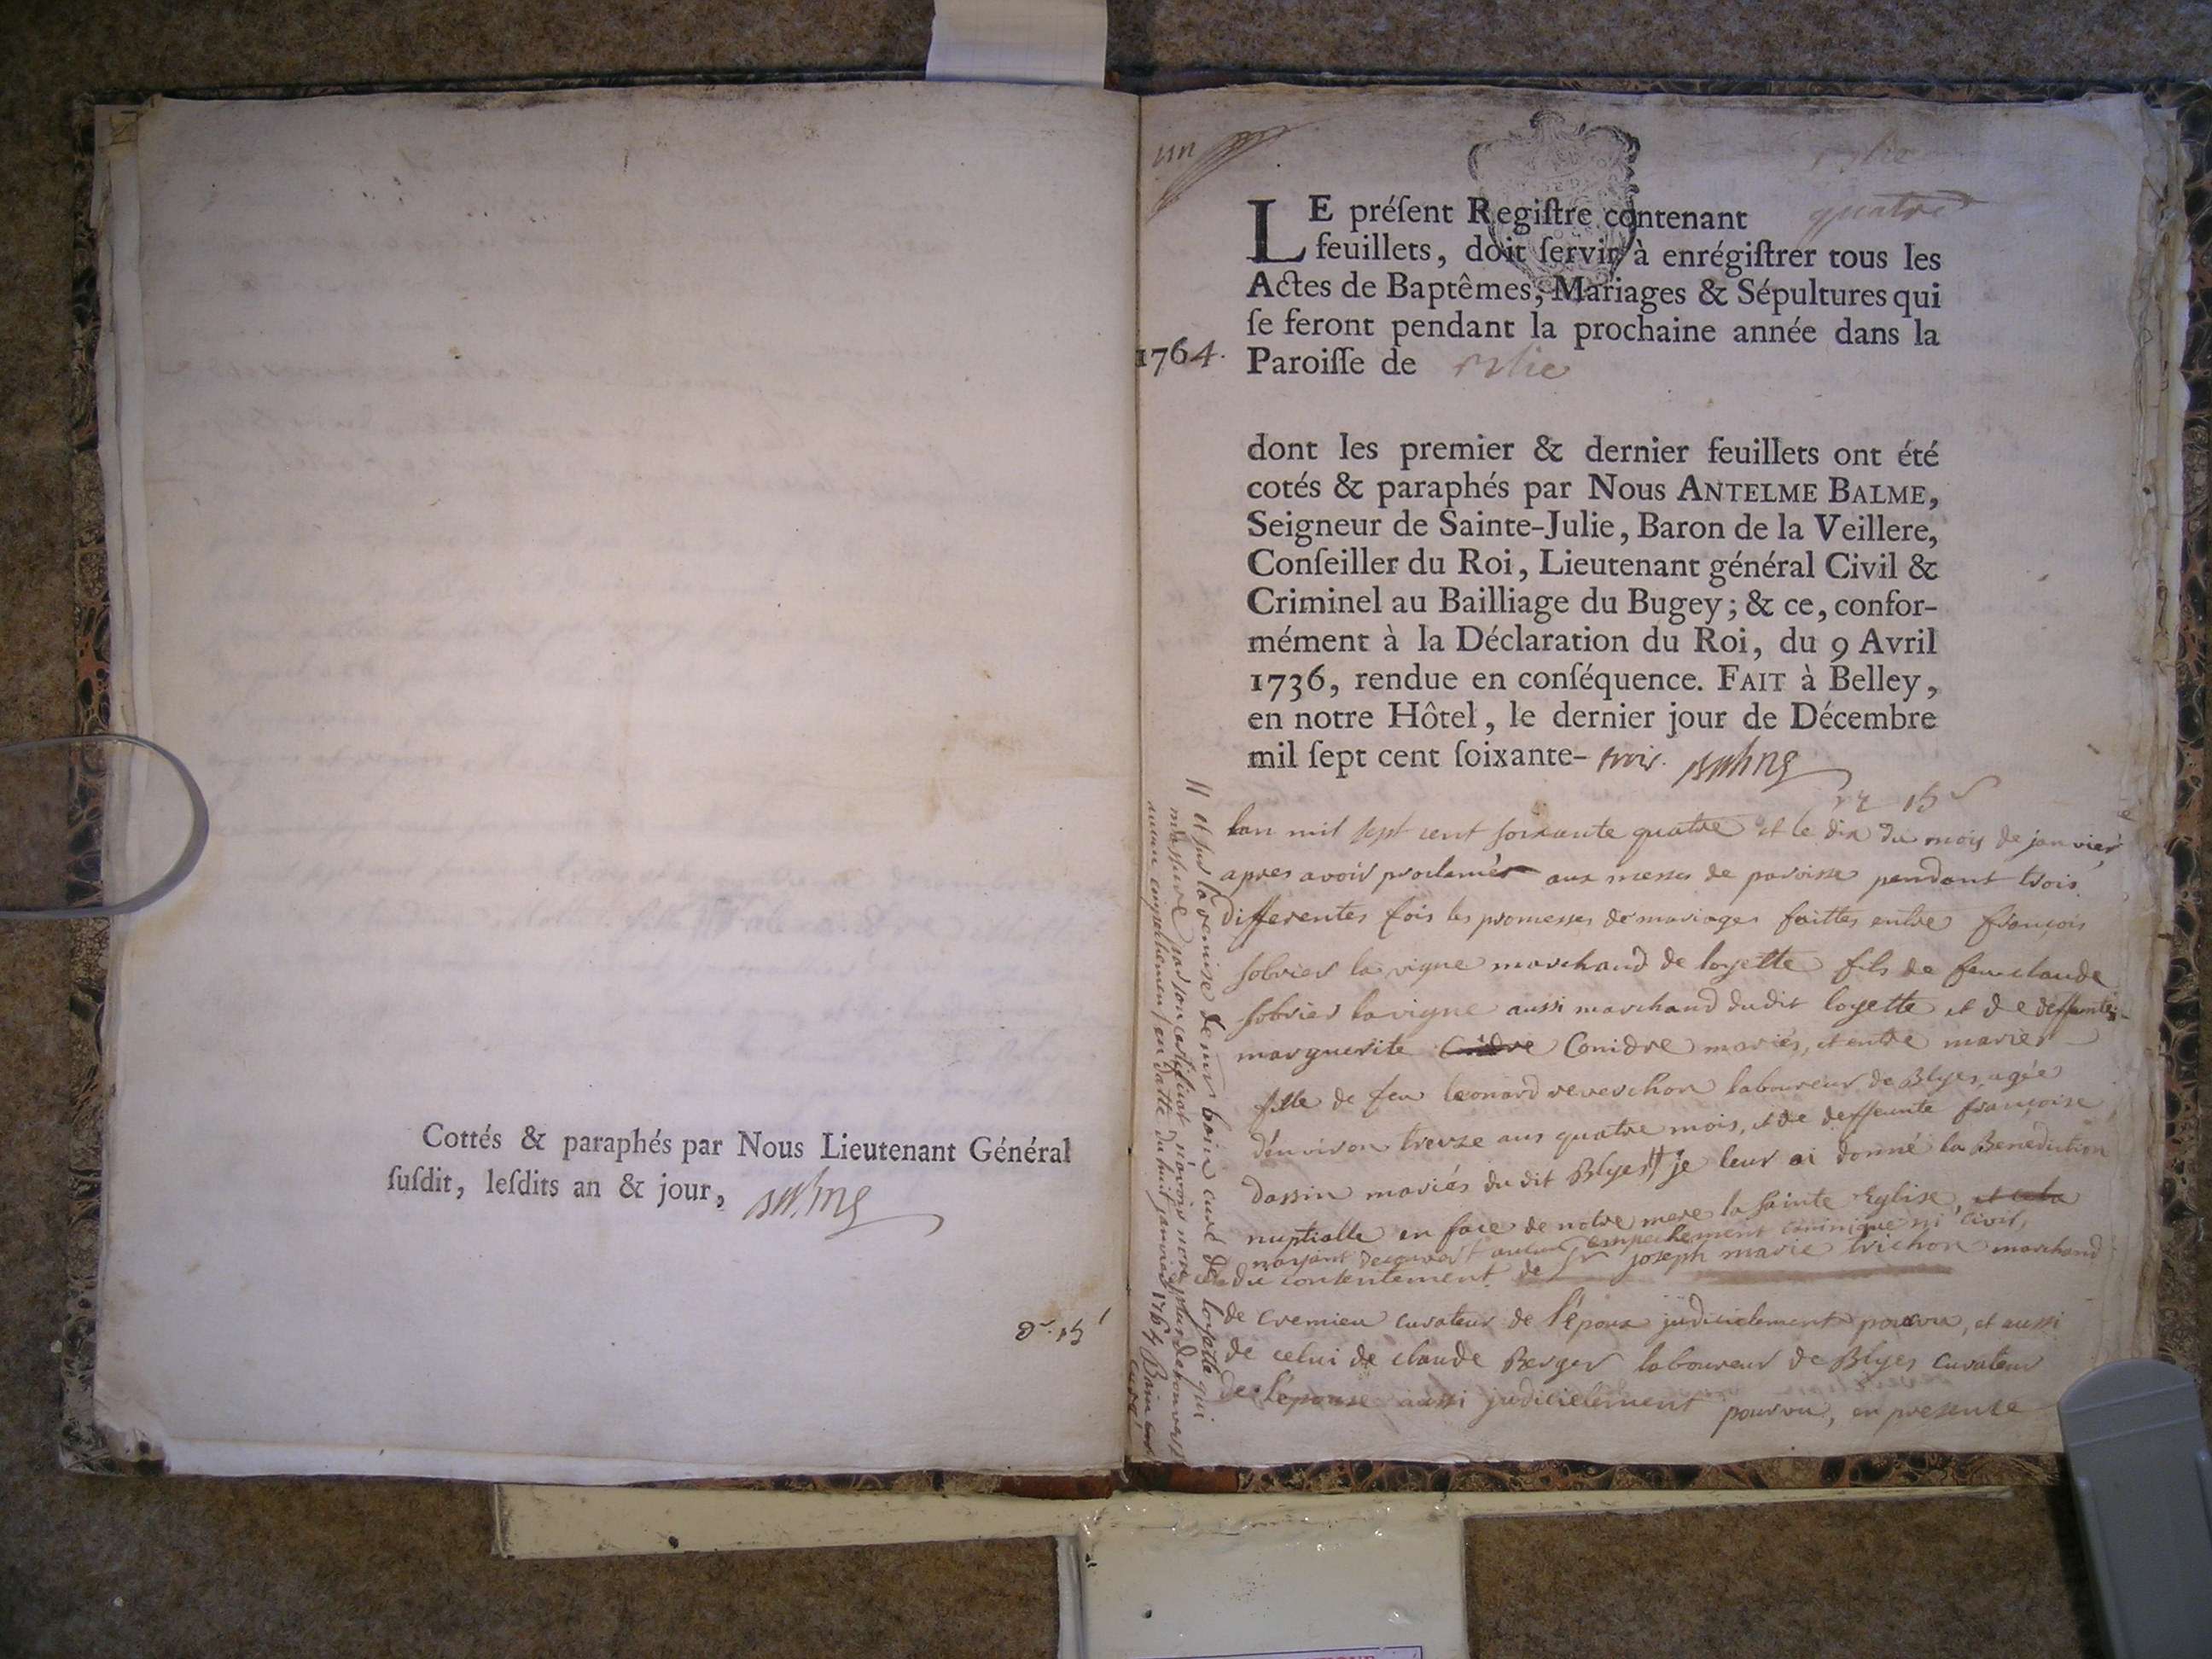 Cottés & paraphés par Nous Lieutenant Général
ſuſdit, leſdits an & jour, Balme
un
quatre
LE préſent Regiſtre contenant
feuillets, doit ſervir à enrégiſtrer tous les
Actes de Baptêmes, Mariages & Sépultures qui
ſe feront pendant la prochaine année dans la
1764. Paroiſſe de
dont les premier & dernier feuillets ont été
cotés & paraphés par Nous ANTELME BALME,
Seigneur de Sainte-Julie, Baron de la Veillere,
Conſeiller du Roi, Lieutenant général Civil &
Criminel au Bailliage du Bugey; & ce, confor-
mément à la Déclaration du Roi, du 9 Avril
1736, rendue en conſéquence. FAIT à Belley,
en notre Hôtel, le dernier jour de Décembre
mil ſept cent ſoixante- trois. Balme
lan mil sept cent soixante quatre et le dix du mois de janvier
apres avoir proclamés aux messes de paroisse pendant trois
differentes fois les promesses de mariages faittes entre françois
sobrier la vigne marchand de loyette fils de feu claude
sobrier lavigne aussi marchand dudit loyette et de deffunte
marguerite Conidre mariés, et entre marie
fille de feu leonard reverchon laboureur de Blyes agée
d'environ treize ans quatre mois, et de deffunte françoise
dassin mariés du dit Blyes // je leur ai donné la Benediction
nuptialle en face de notre mere la sainte Eglise, et cela
nayant decouvert aucun empechement canonique ni civil,
du contentement de Sr joseph marie trichon marchand
de cremieu curateur de l'époux judicielement pourvu, et aussi
de celui de claude Berger laboureur de Blyes curateur
de l'epouse aussi judicielement pourvu, en presence
// et sur la remise de mr boin curé de loyette qui
m'assure par son certificat n'avoir non plus decouvert
aucun empechement en datte du huit janvier 1764 Boin curé